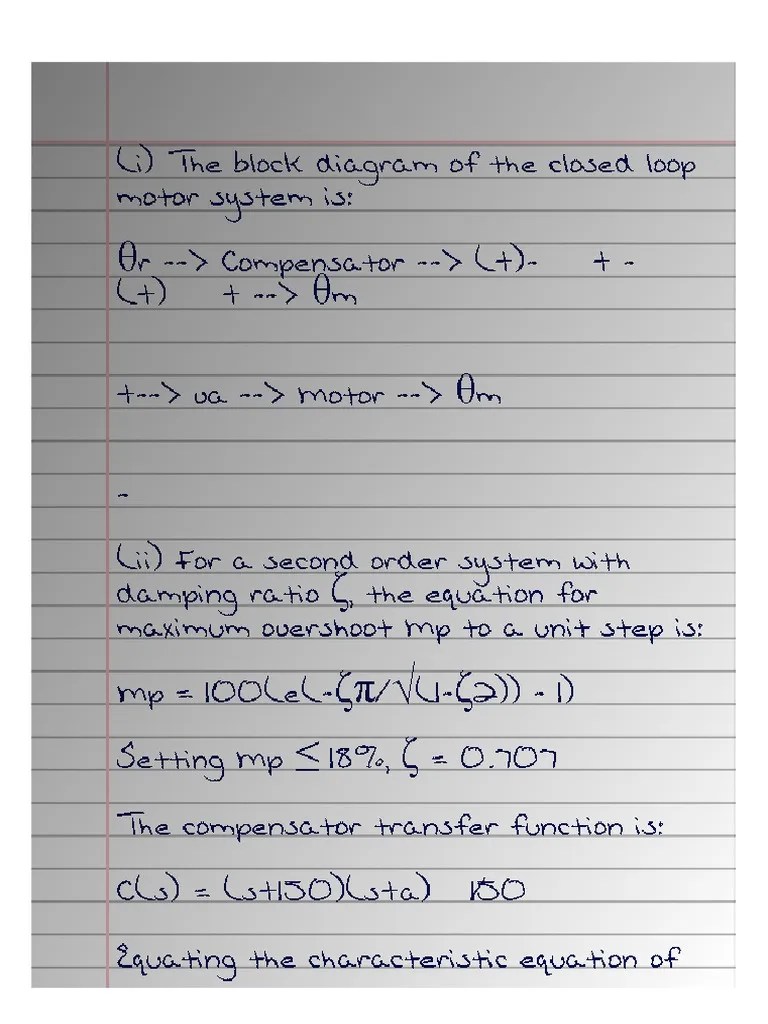 (i) The block diagram of the closed loop
motor system is:
θr --> Compensator --> (+)- + -
(+) + --> θm
+--> va --> motor --> θm
-
(ii) For a second order system with
damping ratio ζ, the equation for
maximum overshoot mp to a unit step is:
mp = 100(e(-ζπ/√(1-ζ2)) - 1)
Setting mp ≤18%, ζ = 0.707
The compensator transfer function is:
C(s) = (s+150)(s+a) 150
Equating the characteristic equation of